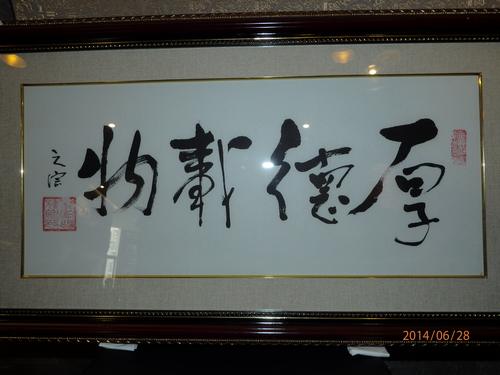 厚德載物
2014/06/28